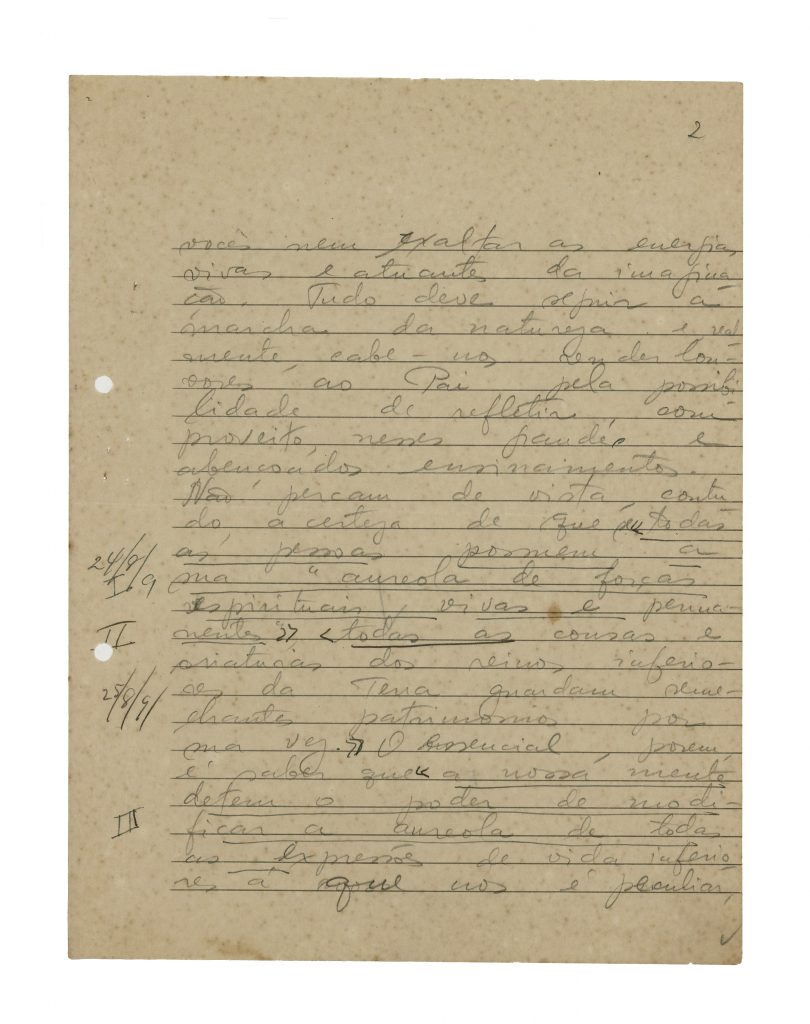 2
vocês nem exaltar as energias
vivas e atuantes da imagina-
ção. Tudo deve seguir a
marcha da natureza e, real
mente, cabe-nos render lou-
vores ao Pai pela possibi
lidade de refletir, com
proveito, nesses grandes e
abençoados ensinamentos.
Não percam de vista, contu
do a certeza de que « todas
as pessoas possuem a
24/8/
sua "aureola de forças
I 9
espirituais, vivas e perma-
II
nentes" » < todas as cousas e
criaturas dos reinos inferio-
25/8/9/
res da Terra guardam seme-
lhantes patrimonios por
sua vez. » O essencial, porém,
é saber que « a nossa mente
detem o poder de modi-
III
ficar a aureola de todas
as expressões de vida inferio-
res à que nos é peculiar,